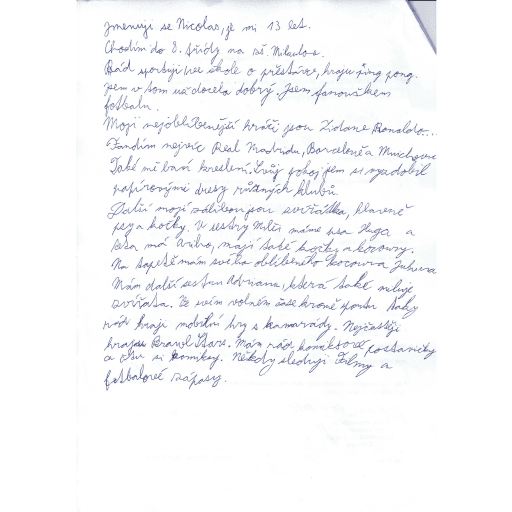 Jmenuji se Nicolas, je mi 13 let.
Chodím do 8. třídy na ZŠ Mikulov.
Rád sportuji ve škole o přestávce, hraju ping pong.
Jsem v tom už docela dobrý. Jsem fanouškem
fotbalu.
Moji nejoblíbenější hráči jsou Zidane, Ronaldo...
Fandím nejvíc Real Madridu, Barceloně a Mnichovu
Také mě baví kreslení. Svůj pokoj jsem si vyzdobil
papírovými dresy různých klubů.
Další mojí zálibou jsou zvířátka, hlavně
psy a kočky. U sestry máme psa Huga a
má, mají také kočky a kocoury.
Na tapetě mám svého oblíbeného kocoura
Mám další sestru Adrianu, která také miluje
zvířata. Ve svém volném čase kromě sportu taky
rád hraji mobilní hry s kamarády. Nejčastěji
hraju Brawl Stars. Mám rád komiksové postavičky
a čtu si komiksy. Někdy sleduji filmy a
fotbalové zápasy.